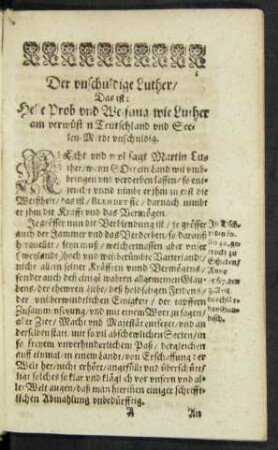 Der vnschuldige Luther/
Das ist:
Helle Prob vnd We sung wie Luther
am verwüst n Teutschland vnd See-
len-M rdt vnschuldig.
REcht vnd wol sagt Martin Lu-
ther/ wann GOtt ein Land wil vmb-
bringen vnd verderben lassen/ so
vnnd nimbt er jhm zu erst die
Weißheit/ das ist/ BLENDET sie/ darnach nimbt
er jhm die Krafft vnd das Vermögen.
Je grösser nun die Verblendung ist/ je grösser
auch der Jammer vnd das Verderben/ so darauß
muß/ welchermassen aber vnser
(weylandt) hoch vnd weitberümbte Vatterland/
nicht allein seiner Kräfften vnnd Vermögens/
sonder auch deß einigen wahren allgemeinen Glau-
bens/ der theweren liebe/ deß heiligen Fridens/
der vnüberwindlichen Einigkeit/ der tapffern
Zusammensetzung/ vnd mit einem Wort zu sagen/
aller Zier/ Macht vnd Majestät entsetzet/ vnd an
derselben statt mit so vil abschewlichen Secten/ in
so freyem vnverhinderlichem Paß/ dergleichen
auff einmal in einem Landt/ von Erschaffung der
Welt her/ nicht erhört/ angefüllt vnd überschüt-
tet/ ligt solches so klar vnd klägl ch vor vnsern vnd al-
ler Welt augen/ daß man hierinen einiger schrifft-
lichen Abmahlung vnbedürfftig.
A An
In Tisch-
reden
Eißleben/
Anno
1567. den